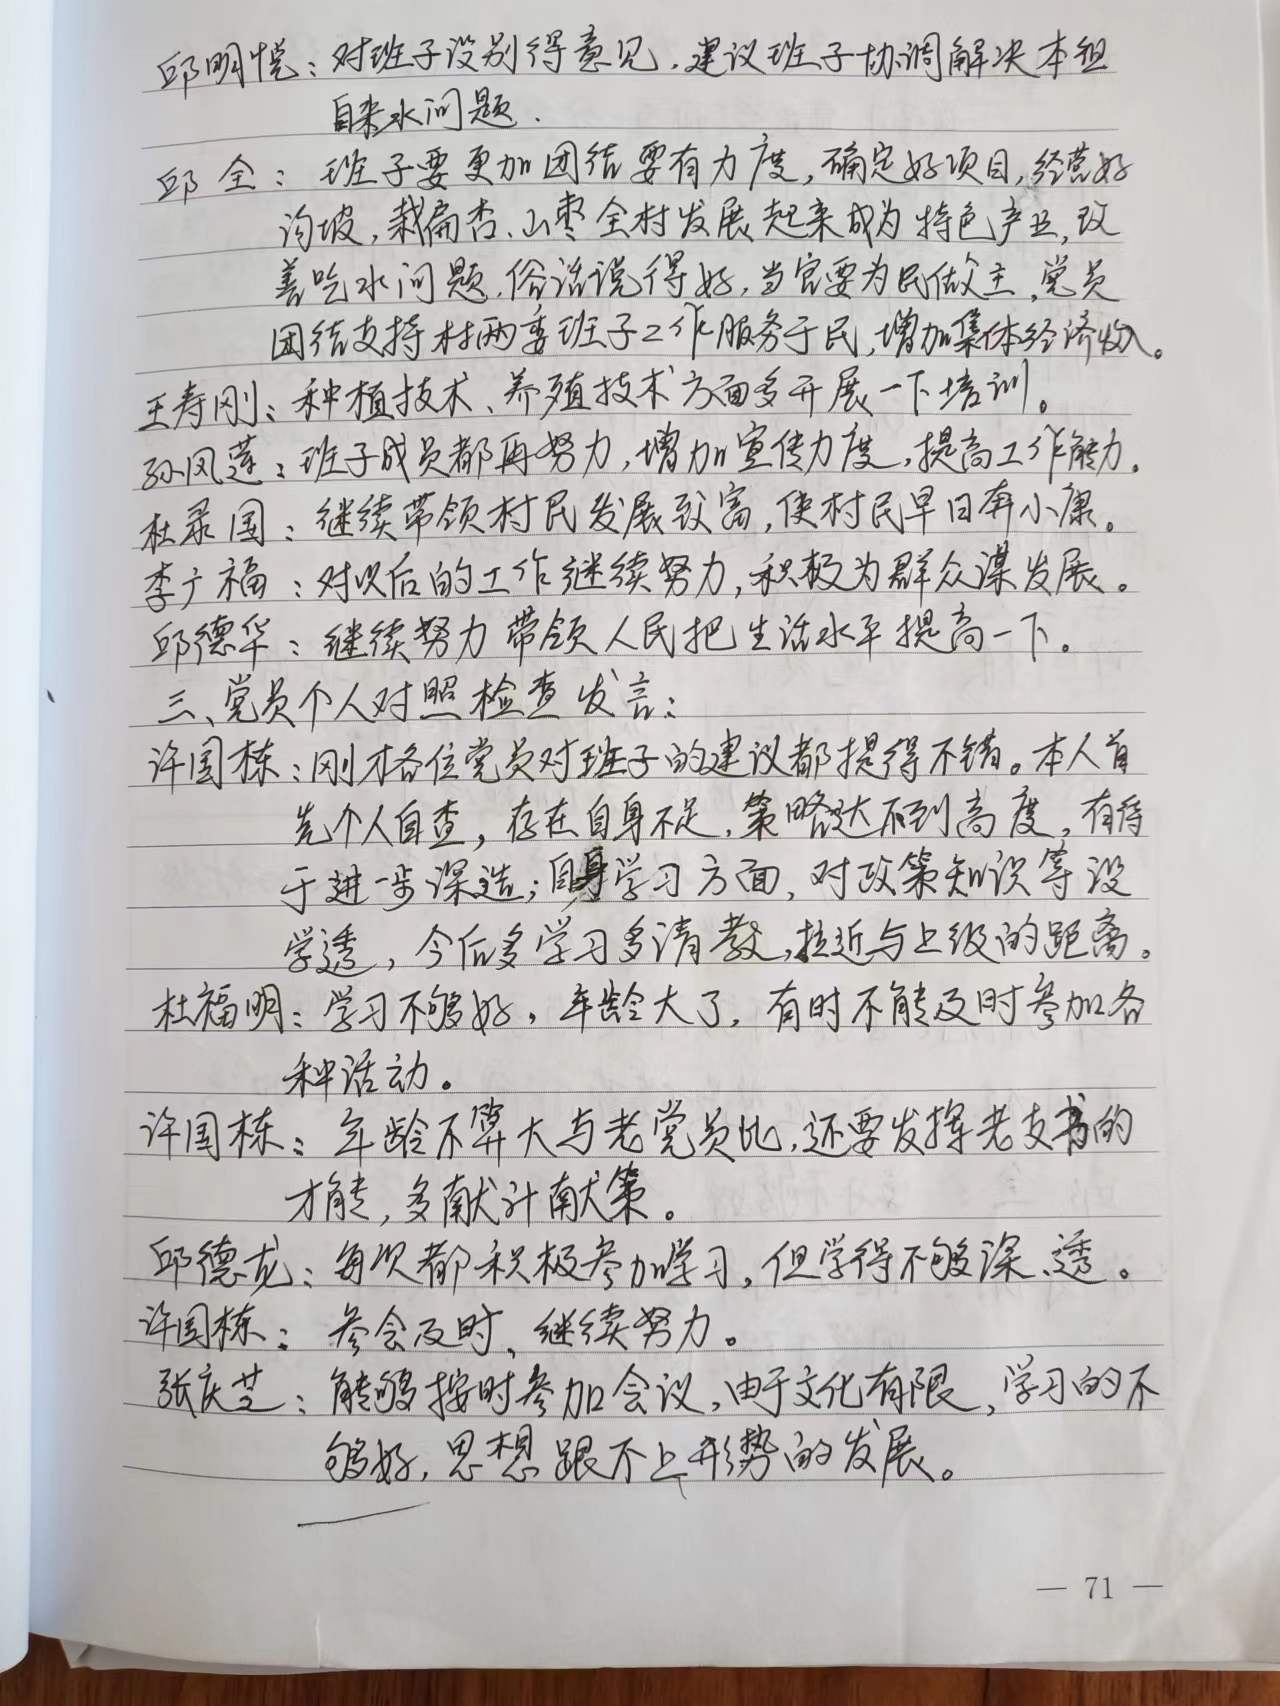 邱明悦：对班子没别得意见，建议班子协调解决本组
自来水问题．
邱全：班子要更加团结要有力度，确定好项目，经营好
沟坡，栽扁杏、山枣全村发展起来成为特色产业，改
善吃水问题，俗话说得好，当官要为民做主，党员
团结支持村两委班子工作服务于民，增加集体经济收入。
王寿刚：种植技术、养殖技术方面多开展一下培训。
孙风莲：班子成员都再努力，增加宣传力度，提高工作能力．
杜录国：继续带领村民发展致富，使村民早日奔小康。
李广福：对以后的工作继续努力，积极为群众谋发展。
邱德华：继续努力带领人民把生活水平提高一下。
三、党员个人对照检查发言：
许国栋：刚才各位党员对班子的建议都提得不错。本人首
先个人自查，存在自身不足，策略达不到高度，有待
于进一步深造；自身学习方面，对政策知识等没
学透，今后多学习多请教，拉近与上级的距离。
杜福明：学习不够好，年龄大了，有时不能及时参加各
种活动。
许国栋：年龄不算大与老党员比，还要发挥老支书的
才能，多献计献策。
邱德龙：每次都积极参加学习，但学得不够深、透。
许国栋：参会及时、继续努力。
张庆芝：能够按时参加会议，由于文化有限，学习的不
够好，思想跟不上形势的发展。
— 71 —